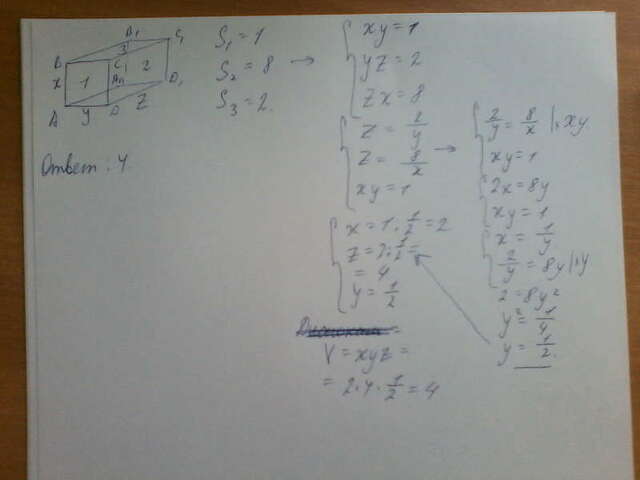 B₁
C₁
B
3
C
x
1
2
A₁
D₁
A
y
D
z
S₁ = 1
S₂ = 8
S₃ = 2
Ответ: 4
xy = 1
yz = 2
zx = 8
z = 2/y
z = 8/x
xy = 1
2/y = 8/x |·xy
xy = 1
2x = 8y
xy = 1
x = 1/y
2/y = 8y |·y
2 = 8y²
y² = 1/4
y = 1/2.
x = 1 : 1/2 = 2
z = 2 : 1/2 =
= 4
y = 1/2
V = xyz =
= 2·4·1/2 = 4